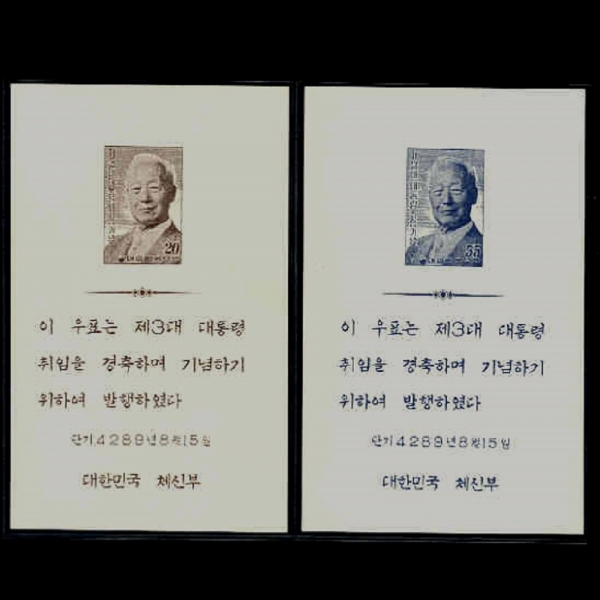 20
이 우표는 제3대 대통령
취임을 경축하며 기념하기
위하여 발행하였다
단기 4289년 8월 15일
대한민국 체신부
55
이 우표는 제3대 대통령
취임을 경축하며 기념하기
위하여 발행하였다
단기 4289년 8월 15일
대한민국 체신부